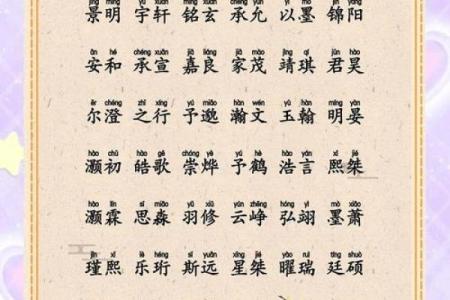 jǐng míng yǔ xuān míng xuán chéng yǔn yǐ mò jǐn yáng
景明 宇轩 铭玄 承允 以墨 锦阳
ān hé chéng xuān jiā liáng jiā mào jìng qí jūn hào
安和 承宣 嘉良 家茂 靖琪 君昊
ěr chéng zhī xíng yú miǎo hàn wén yù hàn míng yàn
尔澄 之行 予邈 瀚文 玉翰 明晏
hào chū hào gē chóng yè yú hè hào yán xī jié
灏初 皓歌 崇烨 予鹤 浩言 熙桀
hào lín sī miǎo yǔ xiū yún zhēng hóng yì mò xiāo
灏霖 思淼 羽修 云峥 弘翊 墨萧
jǐn xī lè héng sī yuǎn xīng jié yào ruì tíng shuò
瑾熙 乐珩 斯远 星桀 曜瑞 廷硕